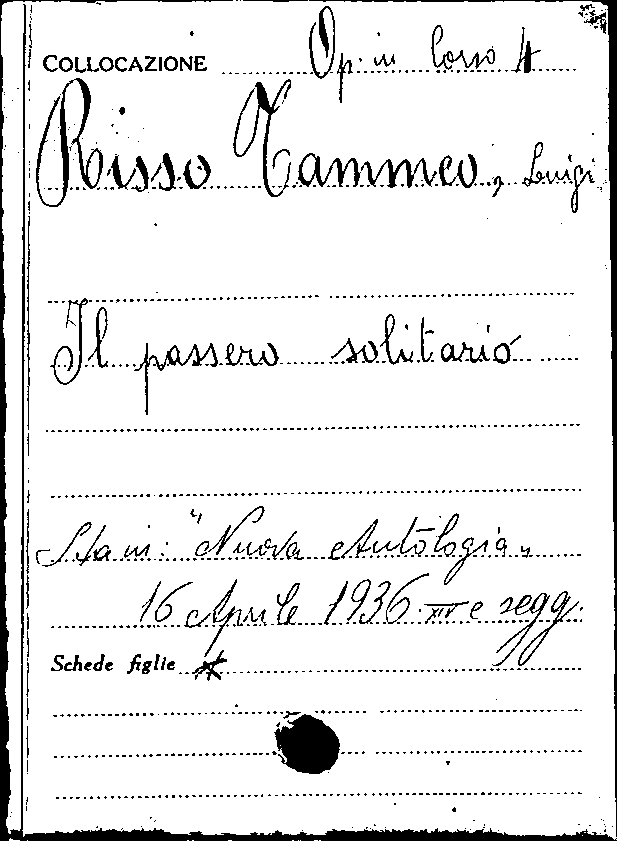 COLLOCAZIONE Op. in Corso 4
Risso Tammeo, Luigi
Il passero solitario
Sta in: "Nuova Antologia„
16 Aprile 1936 XIV e segg.
Schede figlie